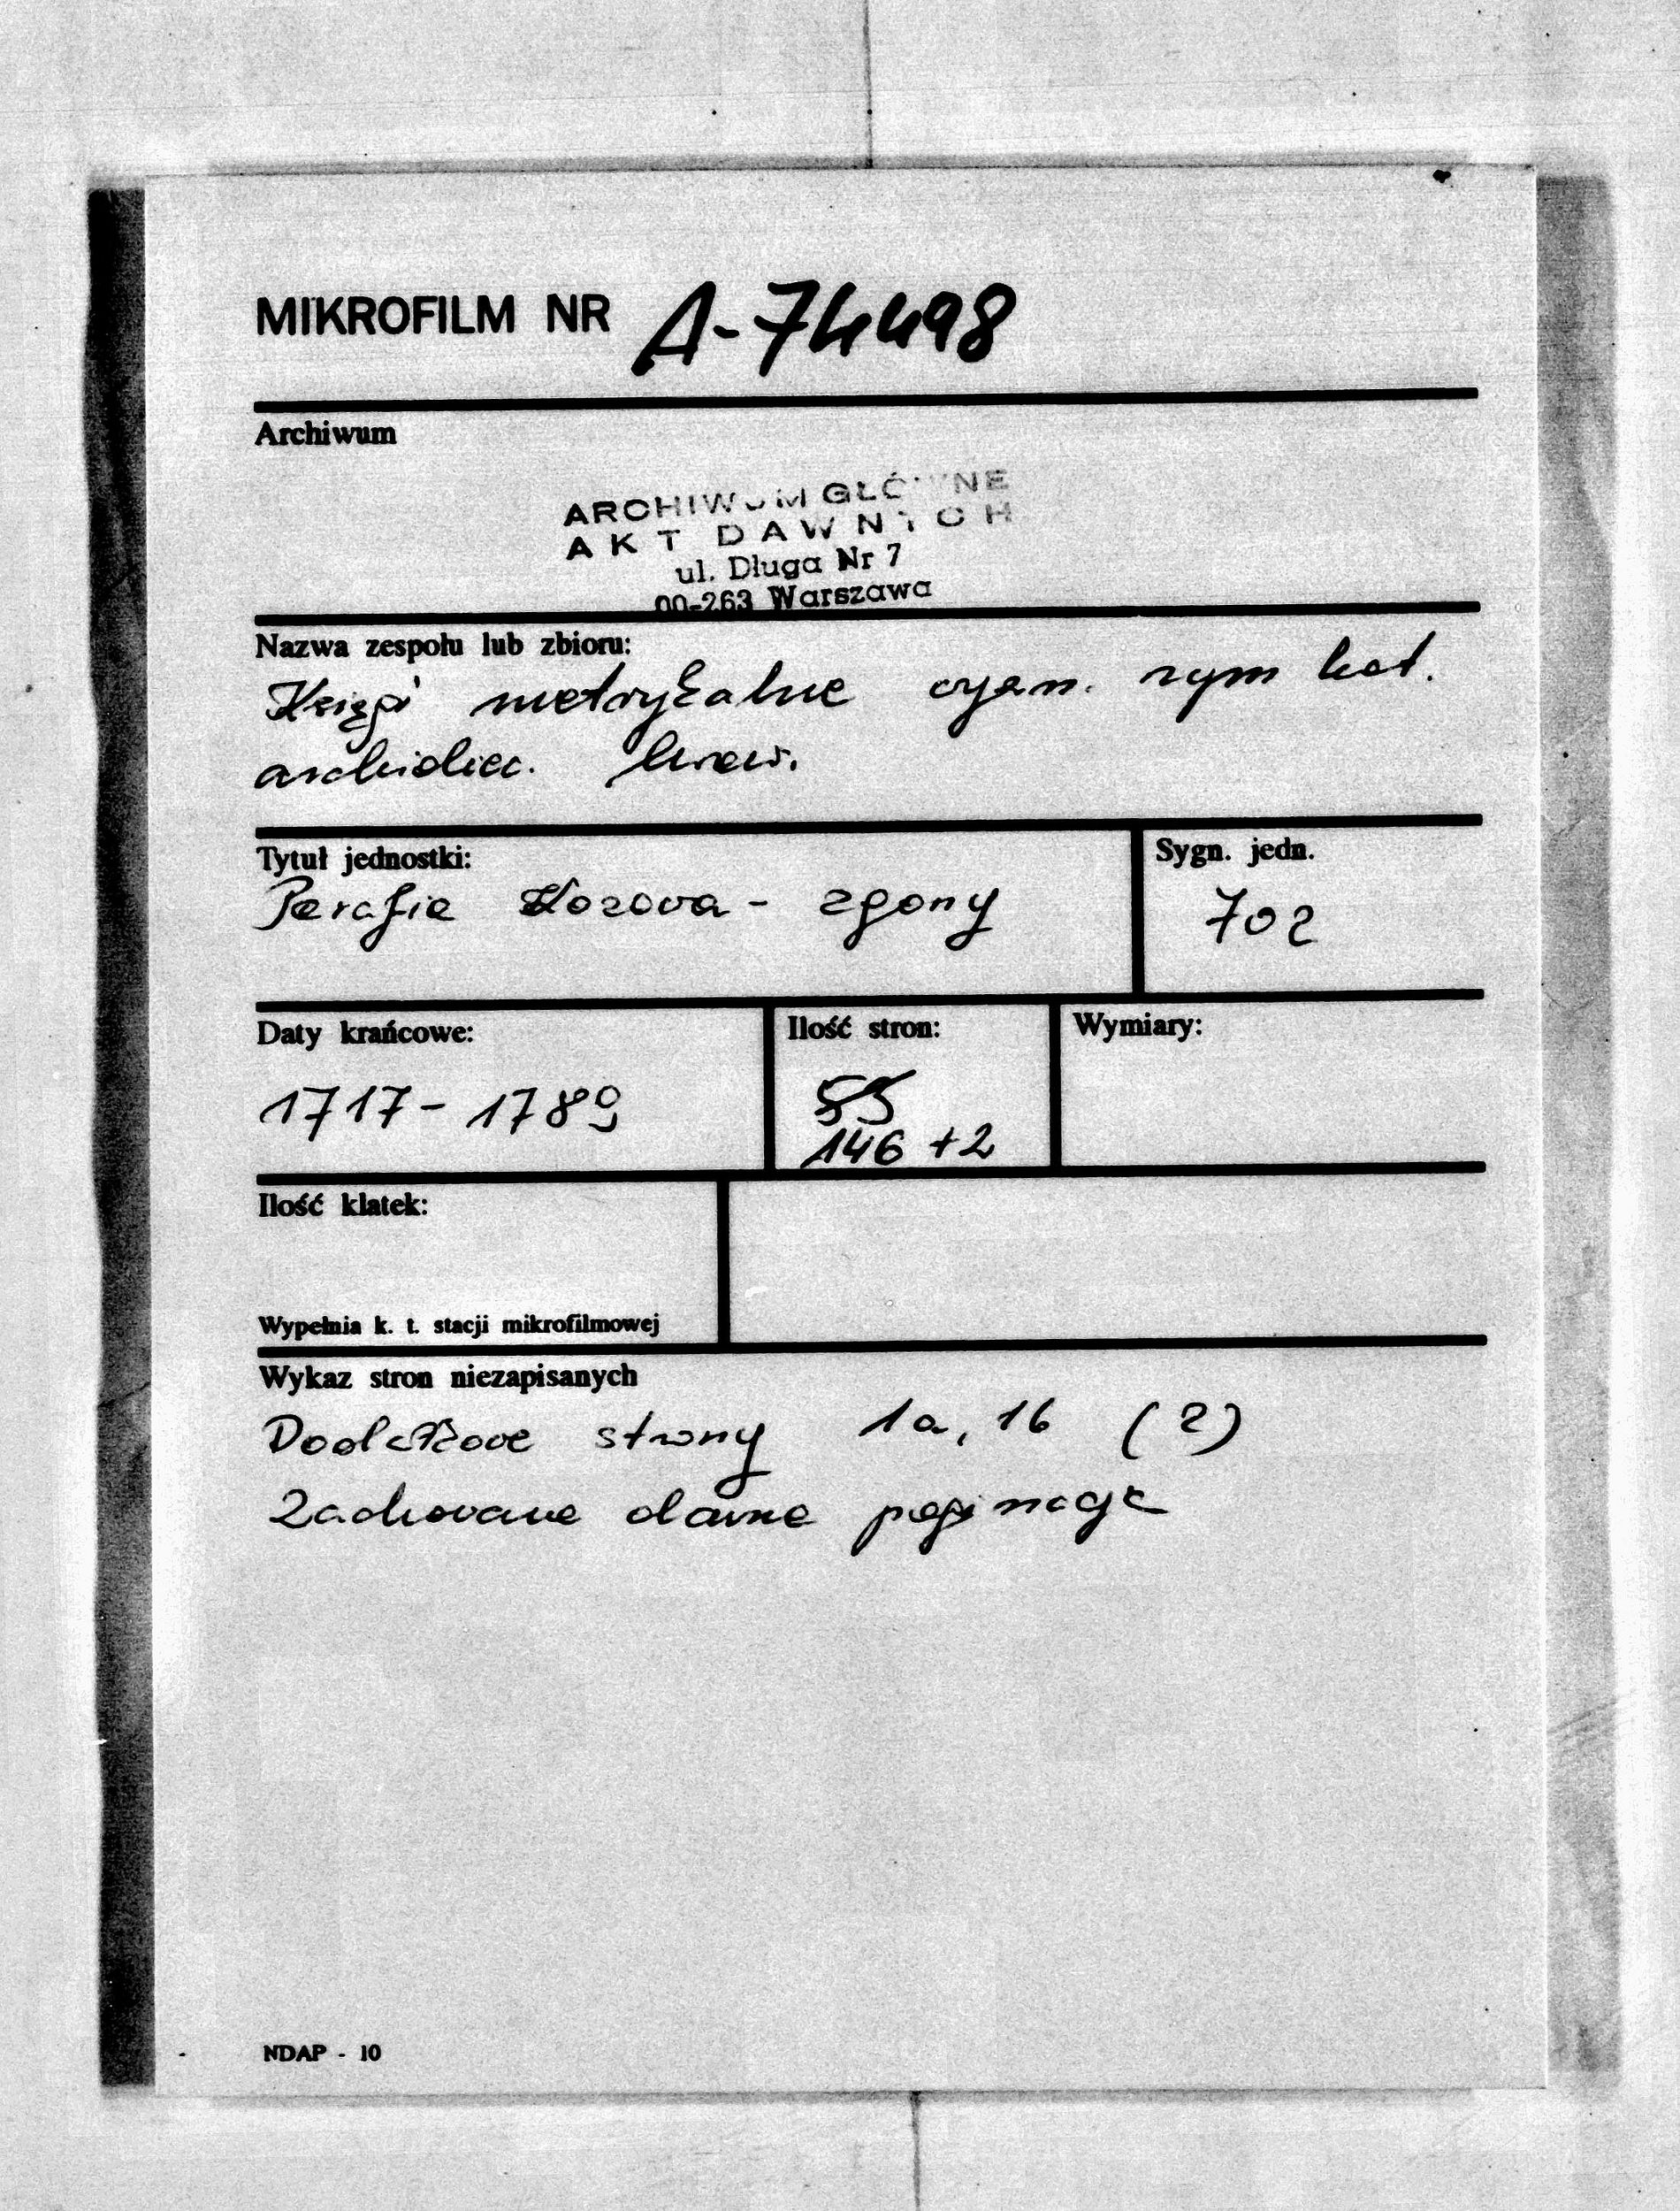 MIKROFILM NR A-74498
Archiwum
ARCHIWUM GŁÓWNE
AKT DAWNYCH
ul. Długa Nr 7
00-263 Warszawa
Nazwa zespołu lub zbioru:
Księgi metrykalne rzym kat.
archidiec. lwow.
Tytuł jednostki:
Parafia Kozowa - zgony
Sygn. jedn.
702
Daty krańcowe:
1717 - 1789
Ilość stron:
146 + 2
Wymiary:
Ilość klatek:
Wypełnia k. t. stacji mikrofilmowej
Wykaz stron niezapisanych
Dodatkowe strony 1a, 1b (2)
Zachowane dawne paginacje
NDAP - 10